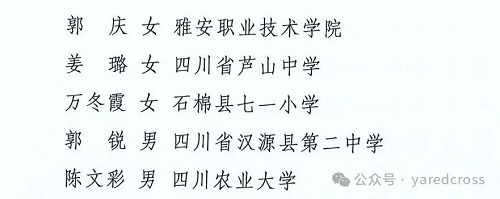 郭　庆 女 雅安职业技术学院
姜　璐 女 四川省芦山中学
万冬霞 女 石棉县七一小学
郭　锐 男 四川省汉源县第二中学
陈文彩 男 四川农业大学
公众号 · yaredcross